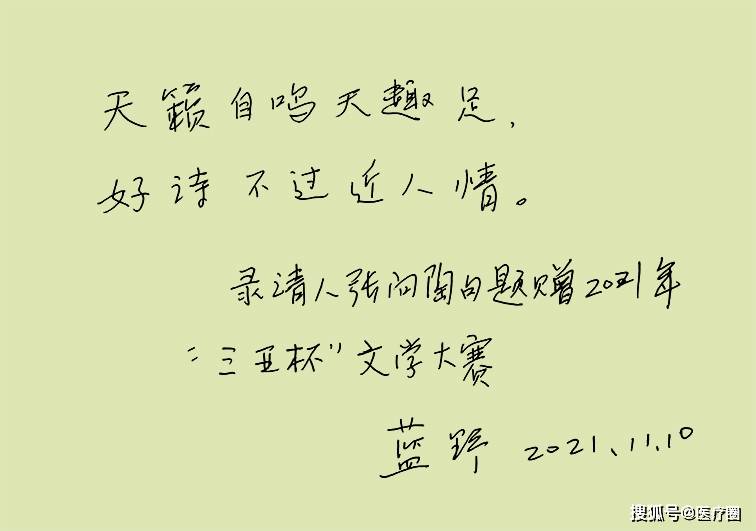 天籁自鸣天趣足,
好诗不过近人情。
录清人张问陶句题赠2021年
“三亚杯”文学大赛
蓝野 2021.11.10
搜狐号@医疗圈